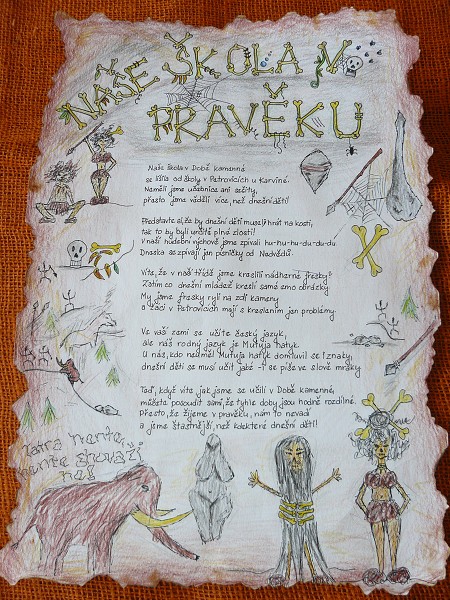 NAŠE ŠKOLA V
PRAVĚKU
Naše škola v Době kamenné
se lišila od školy v Petrovicích u Karviné.
Neměli jsme učebnice ani sešity,
přesto jsme věděli více, než dnešní děti!
Představte si, že by dnešní děti musely hrát na kosti,
tak to by byli určitě plné zlosti!
V naší hudební výchově jsme zpívali hu-hu-hu-du-du-du
Dneska se zpívají jen písničky od Nedvědů.
Víte, že v naší třídě jsme kreslili nádherné fresky?
Zatím co dnešní mládež kreslí samé emo obrázky
My jsme fresky ryli na zdi kameny
a žáci v Petrovicích mají s kreslením jen problémy.
Ve vaší zemi se učíte český jazyk,
ale náš rodný jazyk je Mufuja hatyk
U nás, kdo neuměl Mufuja hatyk domluvil se i znaky,
dnešní děti se musí učit jaké -i se píše ve slově mraky.
Teď, když víte jak jsme se učili v Době kamenné,
můžete posoudit sami, že tyhle doby jsou hodně rozdílné.
Přesto, že žijeme v pravěku, nám to nevadí
a jsme šťastnější, než kdekteré dnešní děti!